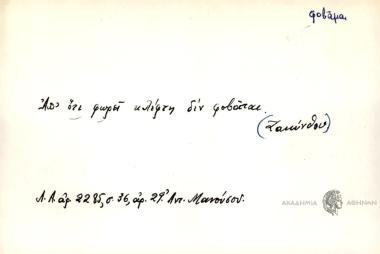 φοβᾶμαι
Ἀπ' ὅτι φορεῖ κλέφτη δὲν φοβᾶται.
(Ζακύνθου)
Λ.Α. ἀρ. 2285, σ. 36, ἀρ. 29. Ἀντ. Μανούσου.
ΑΚΑΔΗΜΙΑ ΑΘΗΝΩΝ